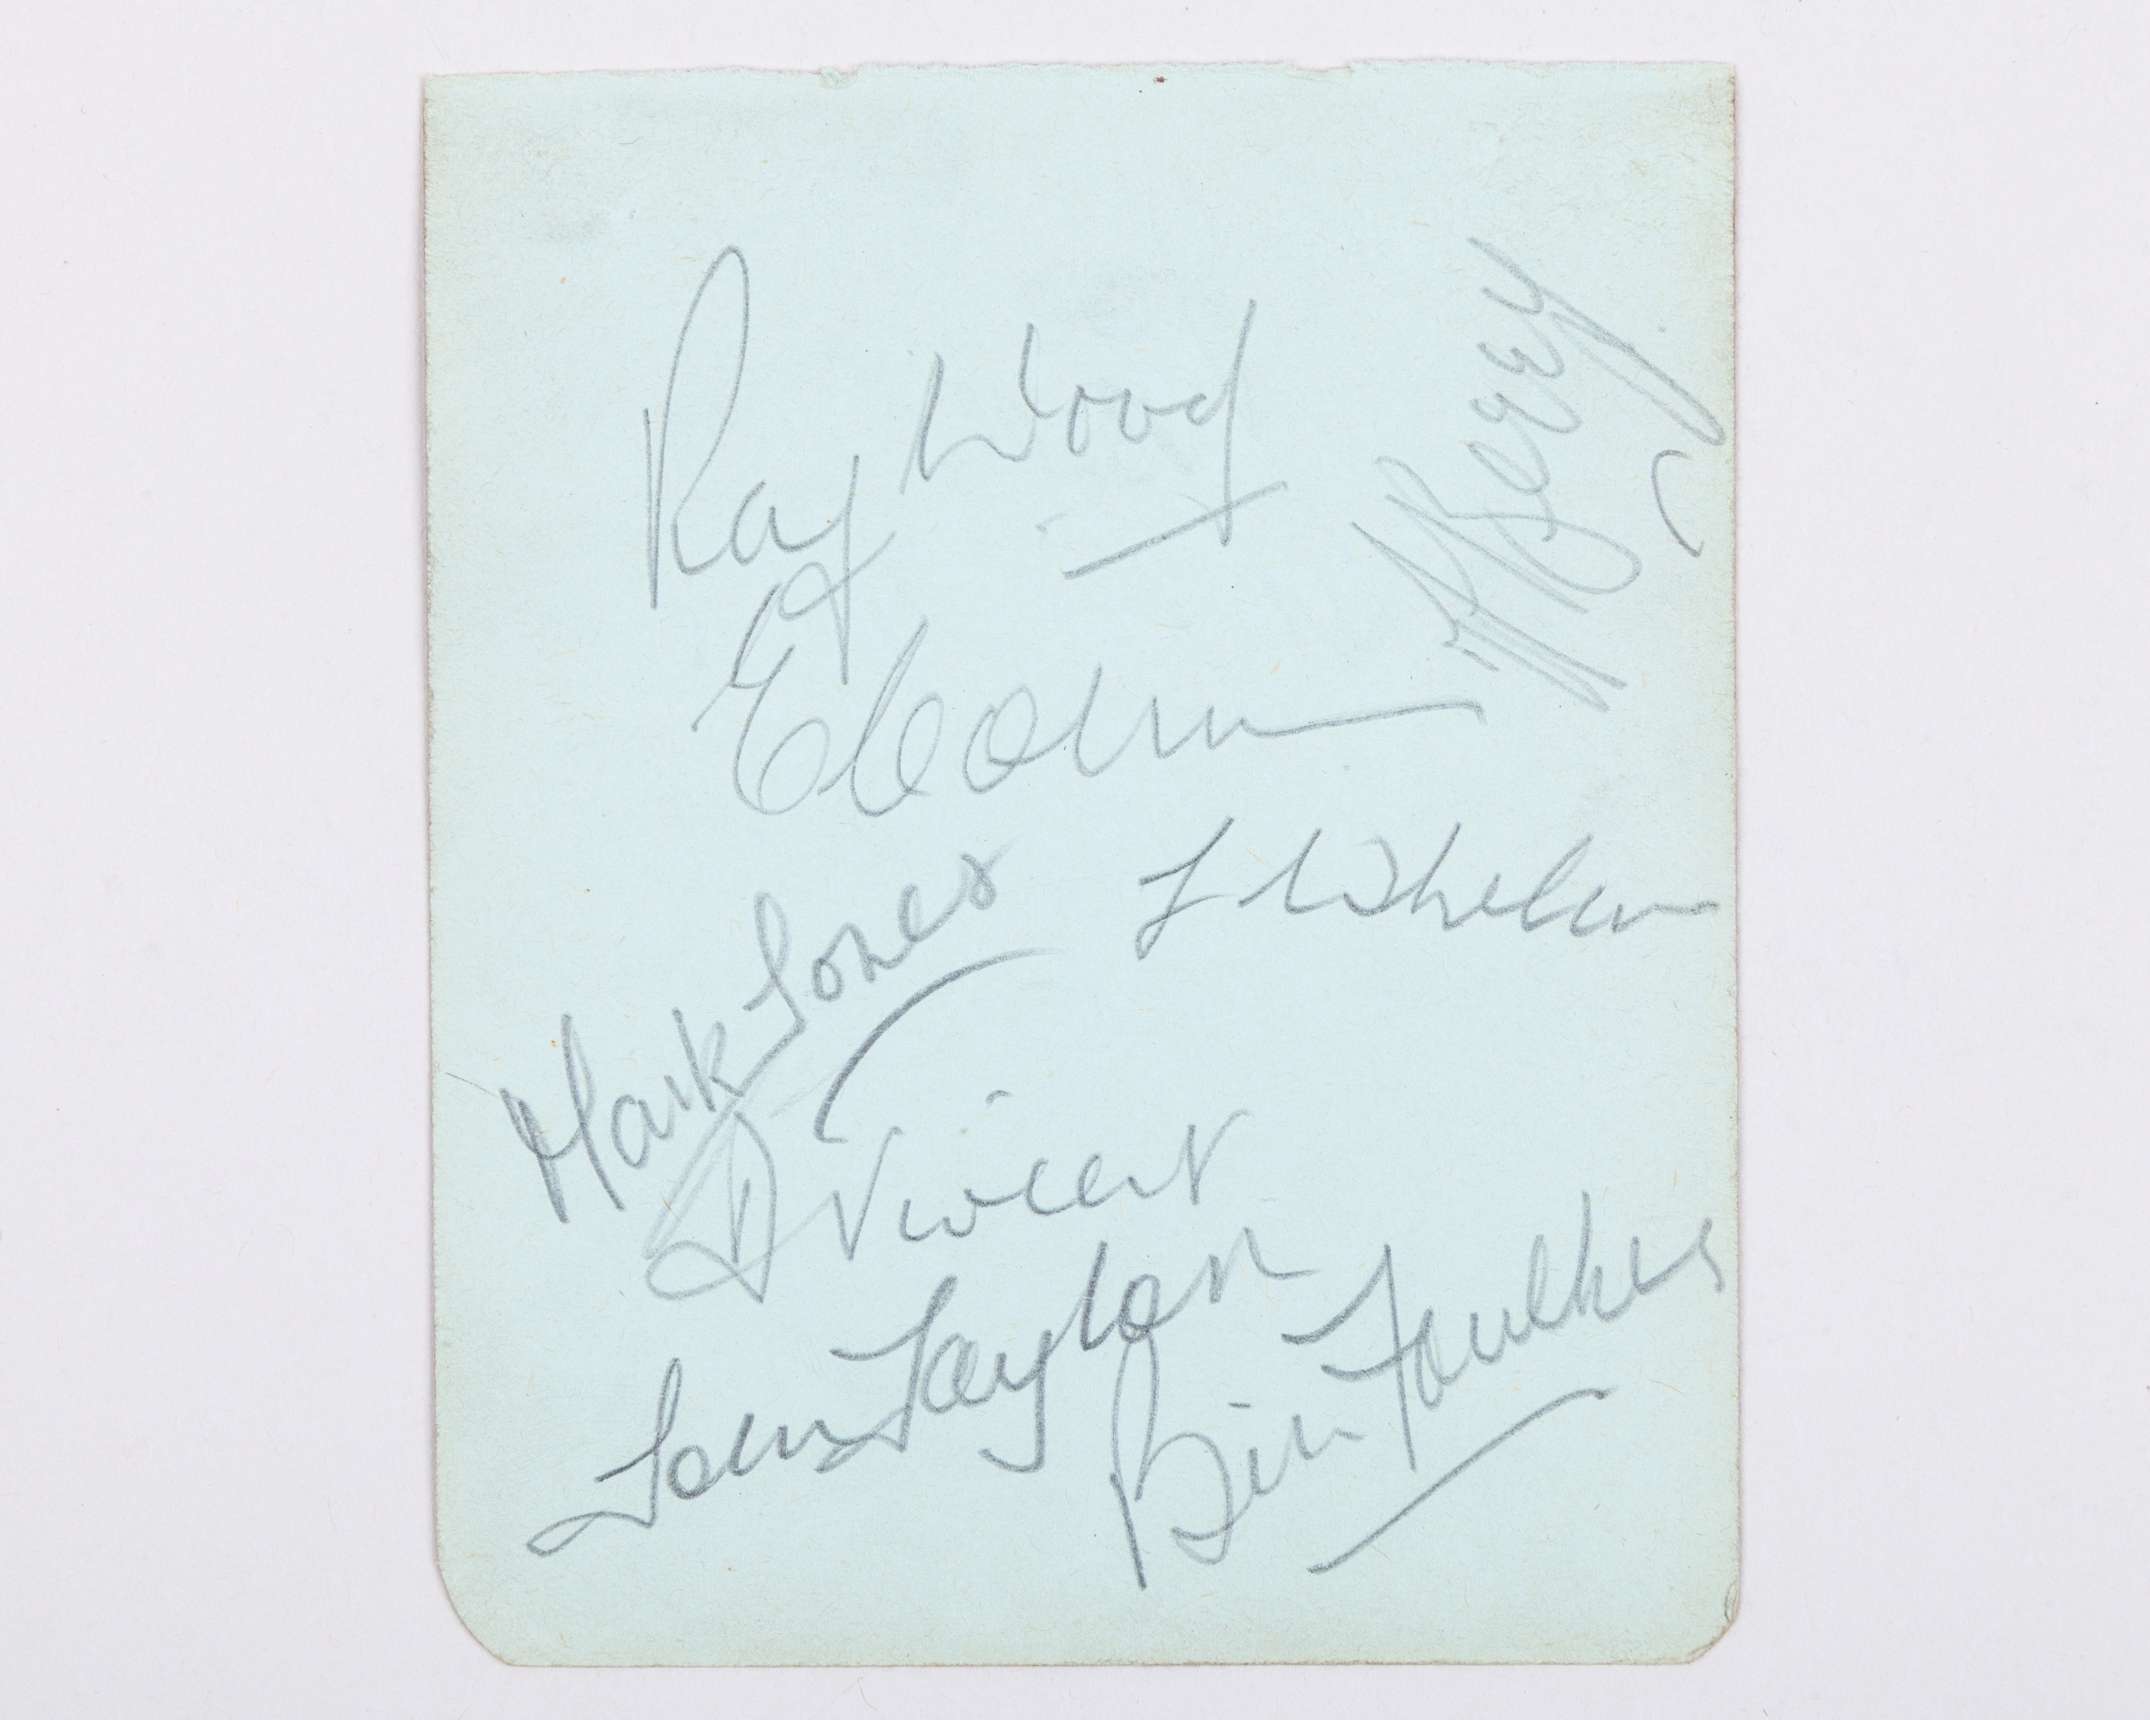 Ray Wood
J Berry
E Colman
L Whelan
Mark Jones
D Viollet
Tommy Taylor
Bill Foulkes